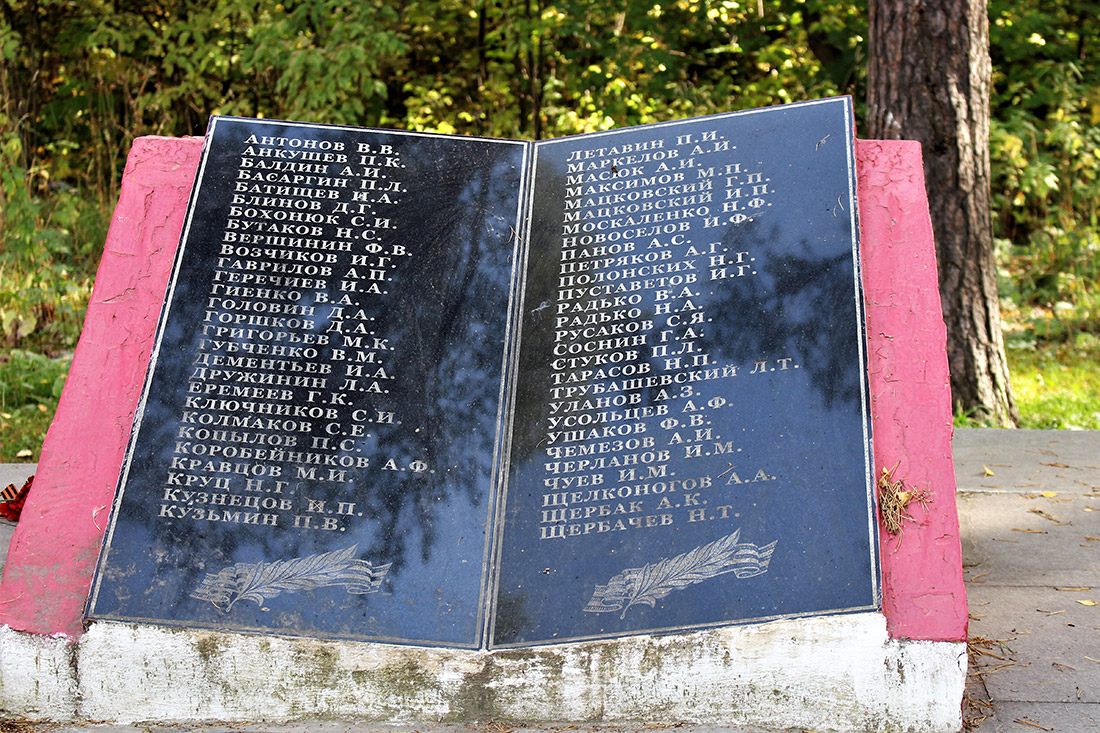 АНТОНОВ В.В.
АНКУШЕВ П.К.
БАЛДИН А.И.
БАСАРГИН П.Л.
БАТИЩЕВ И.А.
БЛИНОВ Д.Г.
БОХОНЮК С.И.
БУТАКОВ Н.С.
ВЕРШИНИН Ф.В.
ВОЗЧИКОВ И.Г.
ГАВРИЛОВ А.П.
ГЕРЕЧИЕВ И.А.
ГИЕНКО В.А.
ГОЛОВИН Д.А.
ГОРШКОВ Д.А.
ГРИГОРЬЕВ М.К.
ГУБЧЕНКО В.М.
ДЕМЕНТЬЕВ И.А.
ДРУЖИНИН Л.А.
ЕРЕМЕЕВ Г.К.
КЛЮЧНИКОВ С.И
КОЛМАКОВ С.Е
КОПЫЛОВ П.С.
КОРОБЕЙНИКОВ А.Ф.
КРАВЦОВ М.И.
КРУЦ Н.Г
КУЗНЕЦОВ И.П.
КУЗЬМИН П.В.
ЛЕТАВИН П.И.
МАРКЕЛОВ А.И.
МАСЮК А.И.
МАКСИМОВ М.П.
МАЦКОВСКИЙ Г.П.
МАЦКОВСКИЙ Т.П.
МОСКАЛЕНКО Н.Ф.
НОВОСЕЛОВ И.Ф.
ПАНОВ А.С.
ПЕТРЯКОВ А.Г.
ПОЛОНСКИХ Н.Г.
ПУСТАВЕТОВ И.Г.
РАДЬКО В.А.
РАДЬКО Н.А.
РУСАКОВ С.Я.
СОСНИН Г.А.
СТУКОВ П.Л.
ТАРАСОВ Н.П.
ТРУБАШЕВСКИЙ Л.Т.
УЛАНОВ А.З.
УСОЛЬЦЕВ А.Ф.
УШАКОВ Ф.В.
ЧЕМЕЗОВ А.И.
ЧЕРЛАНОВ И.М.
ЧУЕВ И.М.
ЩЕЛКОНОГОВ А.А.
ЩЕРБАК А.К.
ЩЕРБАЧЕВ Н.Т.